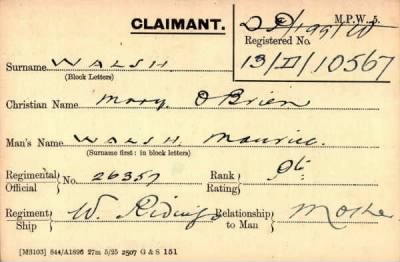 CLAIMANT.
M.P.W. 5.
Registered No.
13/II/10567
Surname WALSH
(Block Letters)
Christian Name Mary O'Brien
Man's Name WALSH. Maurice.
(Surname first: in block letters)
Regimental
Official
No. 26357
Rank
Rating
Pte.
Regiment
Ship
W. Ridings
Relationship
to Man
Mother
[M3103] 844/A1896 27m 5/25 2507 G & S 151